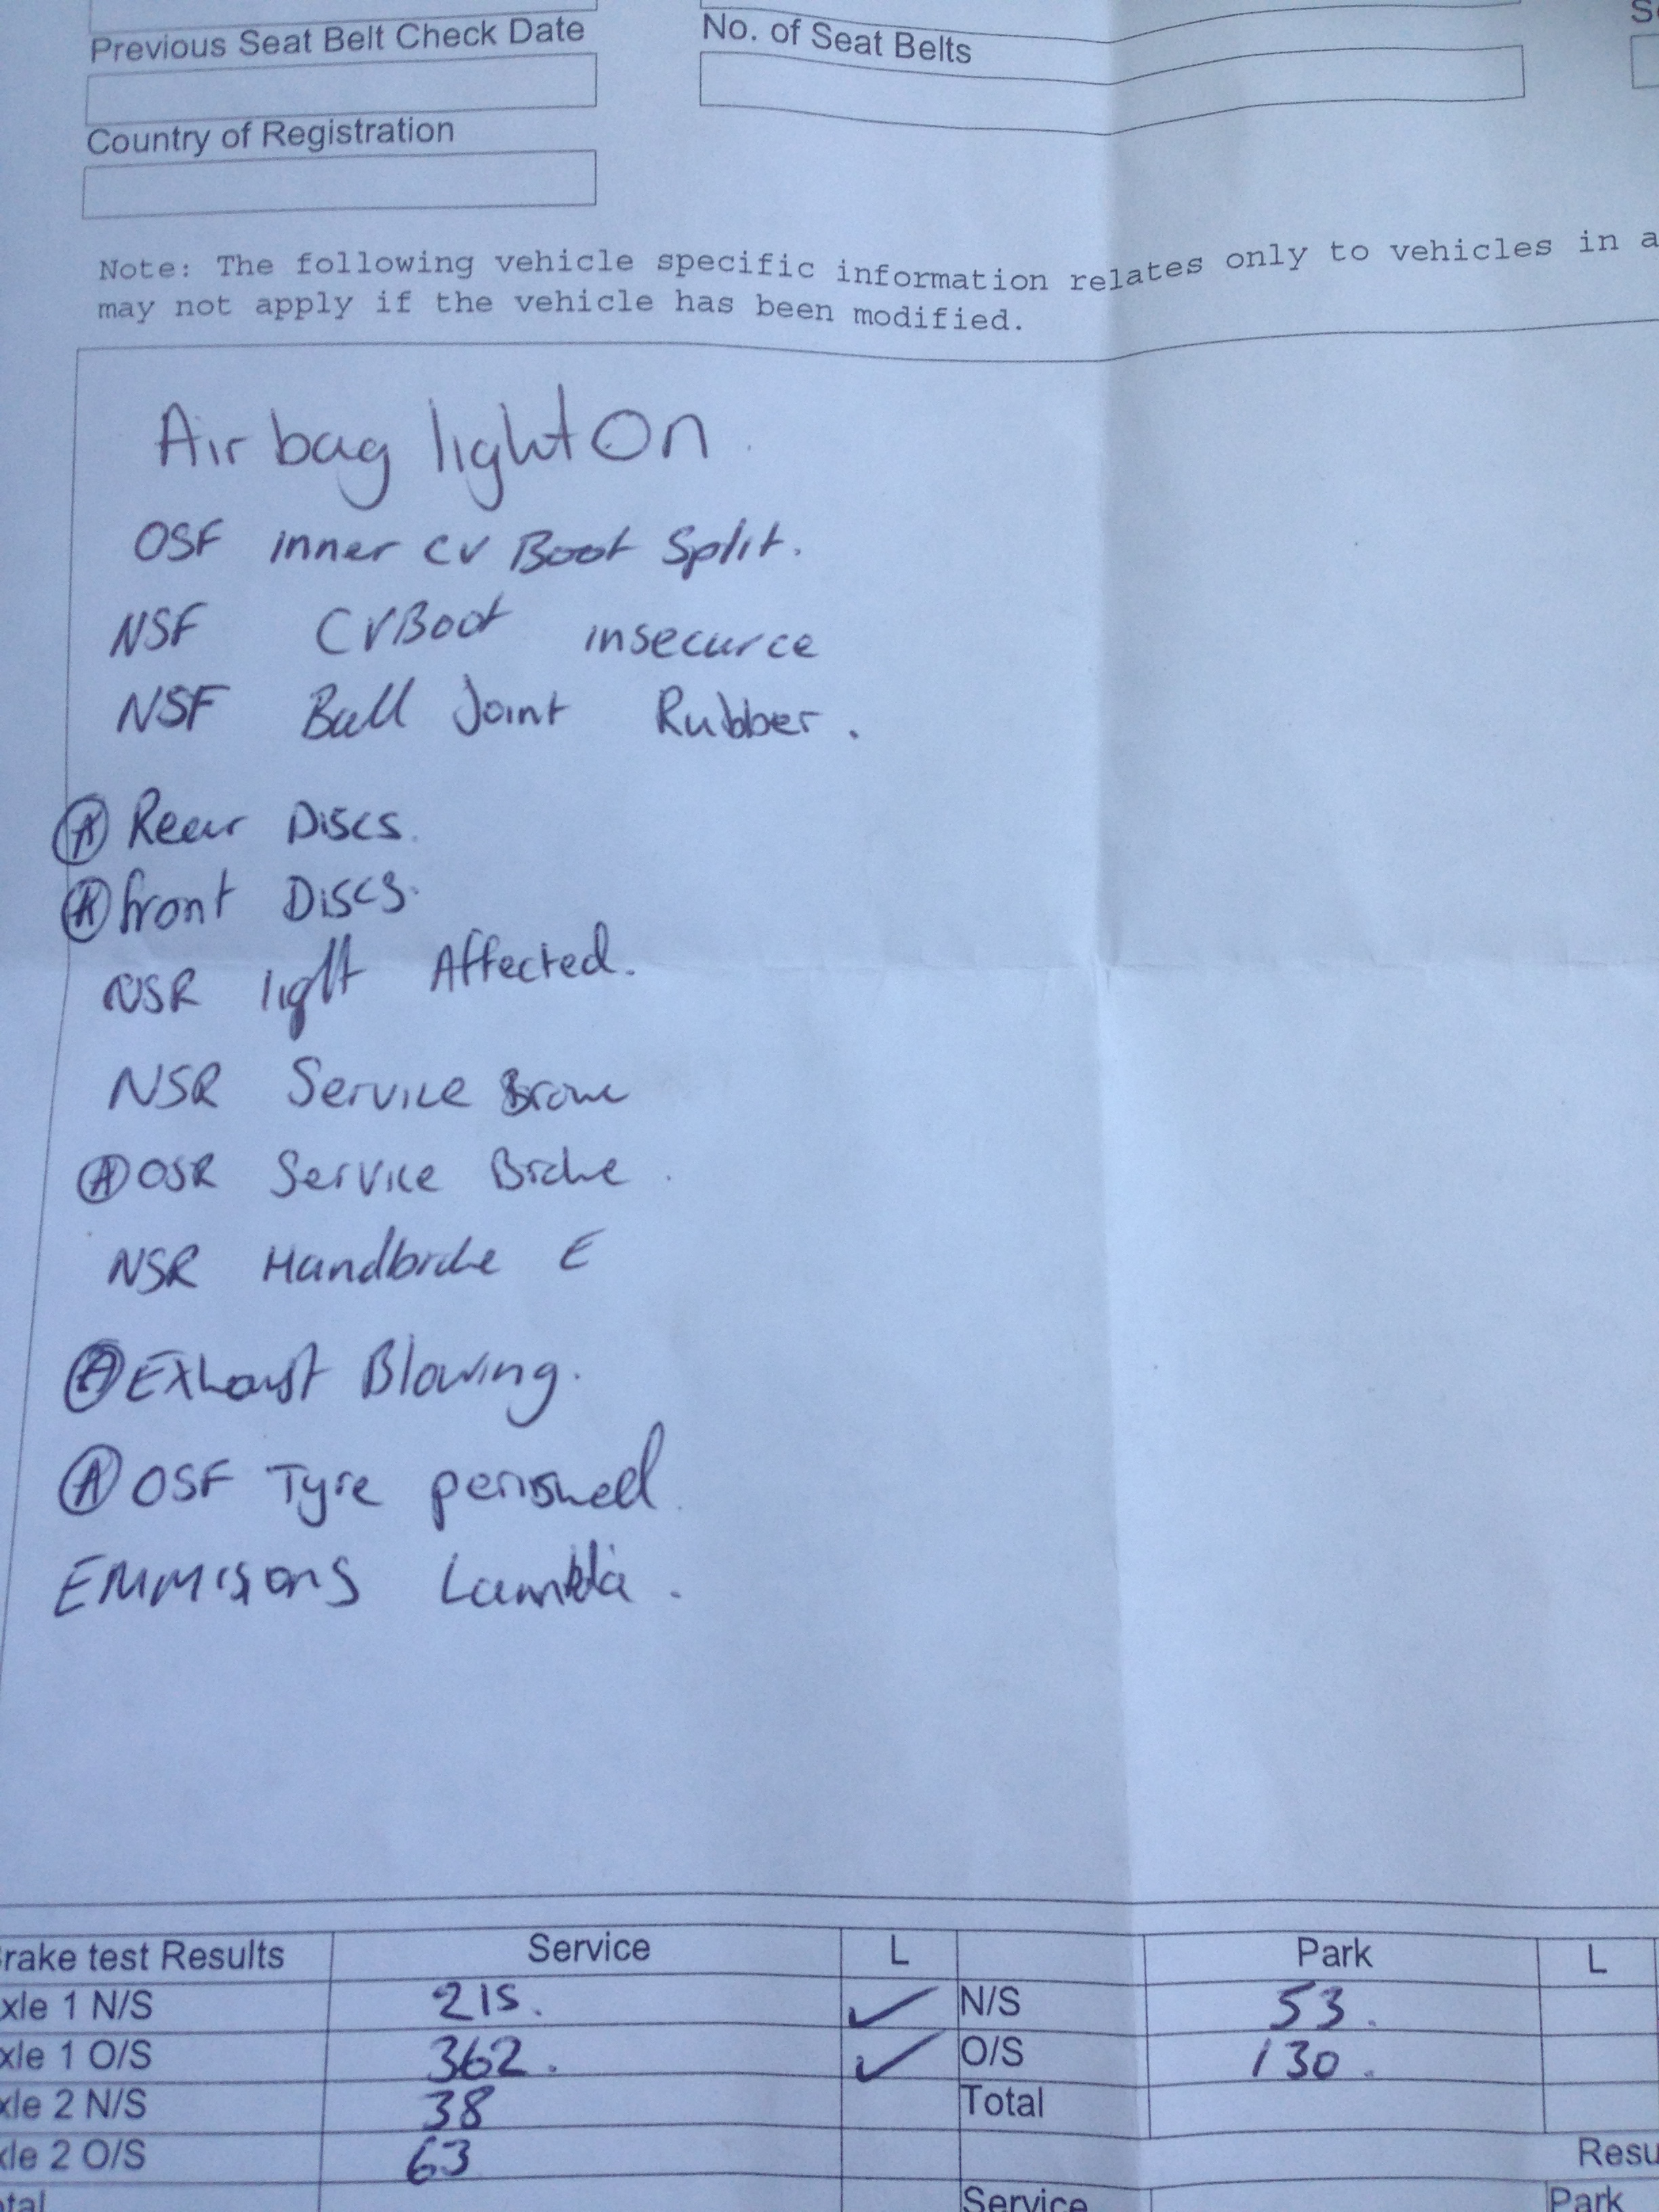 Previous Seat Belt Check Date
No. of Seat Belts
Country of Registration
Note: The following vehicle specific information relates only to vehicles in a
may not apply if the vehicle has been modified.
Air bag light On
OSF inner CV Boot Split.
NSF CV Boot insecurce
NSF Ball Joint Rubber.
A Rear Discs.
A front Discs.
NSR light Affected.
NSR Service
A OSR Service Brake.
NSR Handbrake E
A Exhaust Blowing.
A OSF Tyre perished.
EMMISONS Lambda.
rake test Results Service L Park L
xle 1 N/S 215. ✓ N/S 53.
xle 1 O/S 362. ✓ O/S 130.
xle 2 N/S 38 Total
xle 2 O/S 63 Resu
otal Service Park